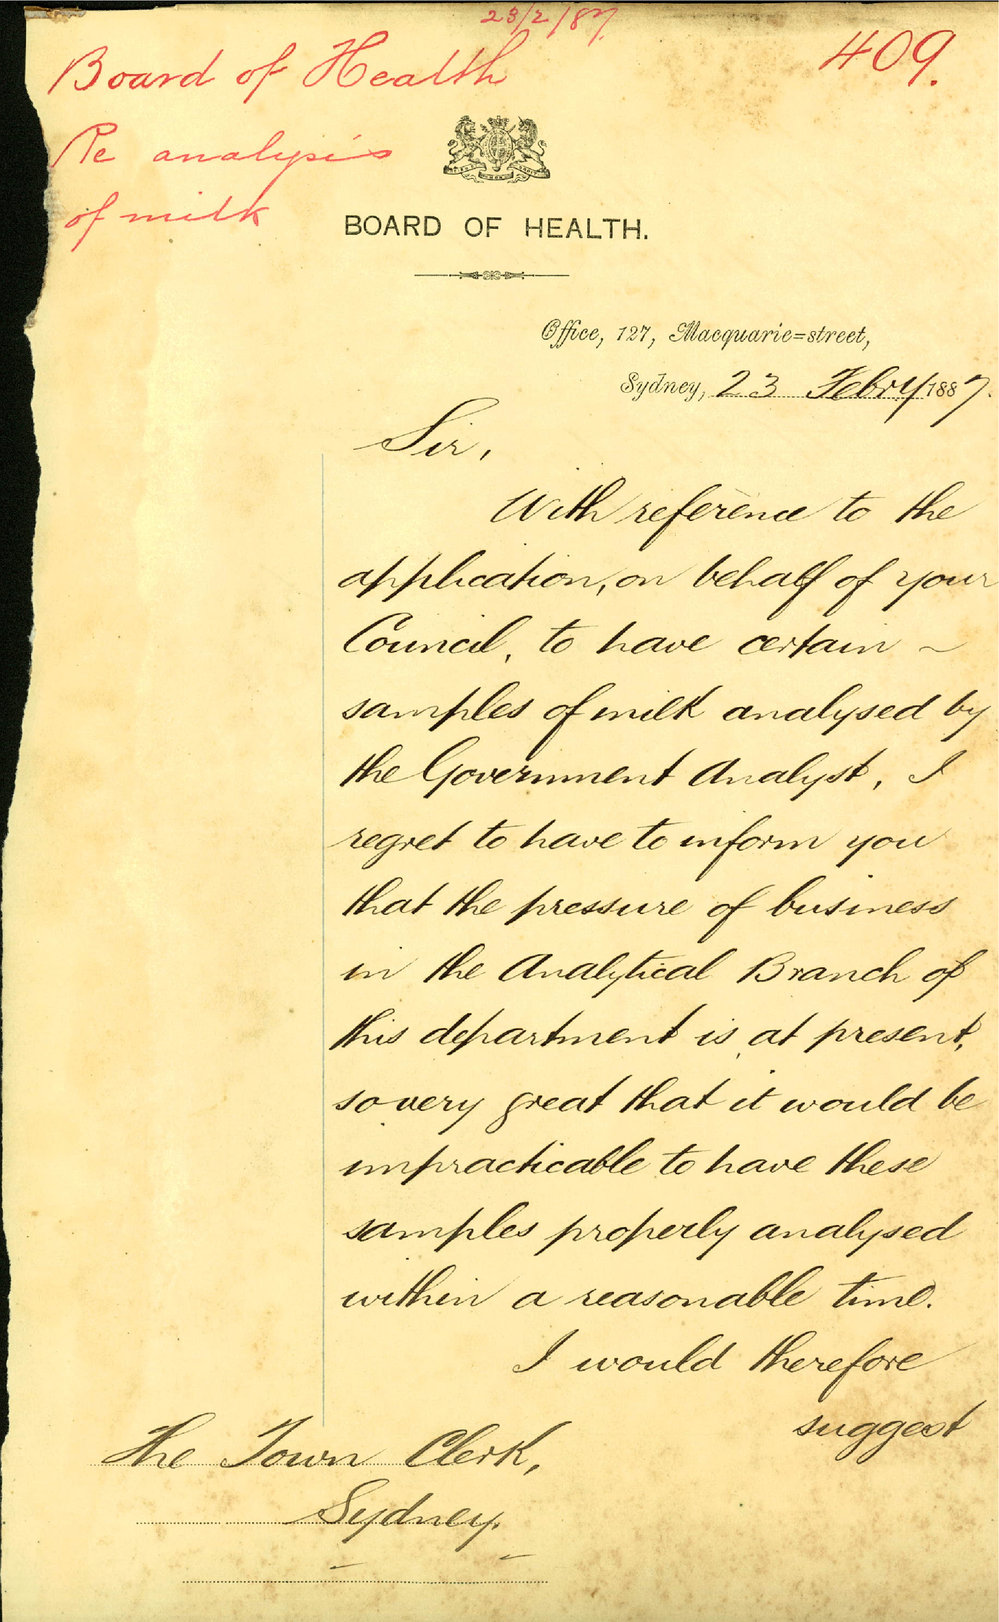 23/2/87.
Board of Health
409.
Re analysis
of milk
BOARD OF HEALTH.
Office, 127, Macquarie=street,
Sydney, 23 Febry 1887.
Sir,
With reference to the
application, on behalf of your
Council, to have certain ~
samples of milk analysed by
the Government Analyst, I
regret to have to inform you
that the pressure of business
in the Analytical Branch of
this department is, at present,
so very great that it would be
impracticable to have these
samples properly analysed
within a reasonable time.
I would therefore
suggest
The Town Clerk,
Sydney.